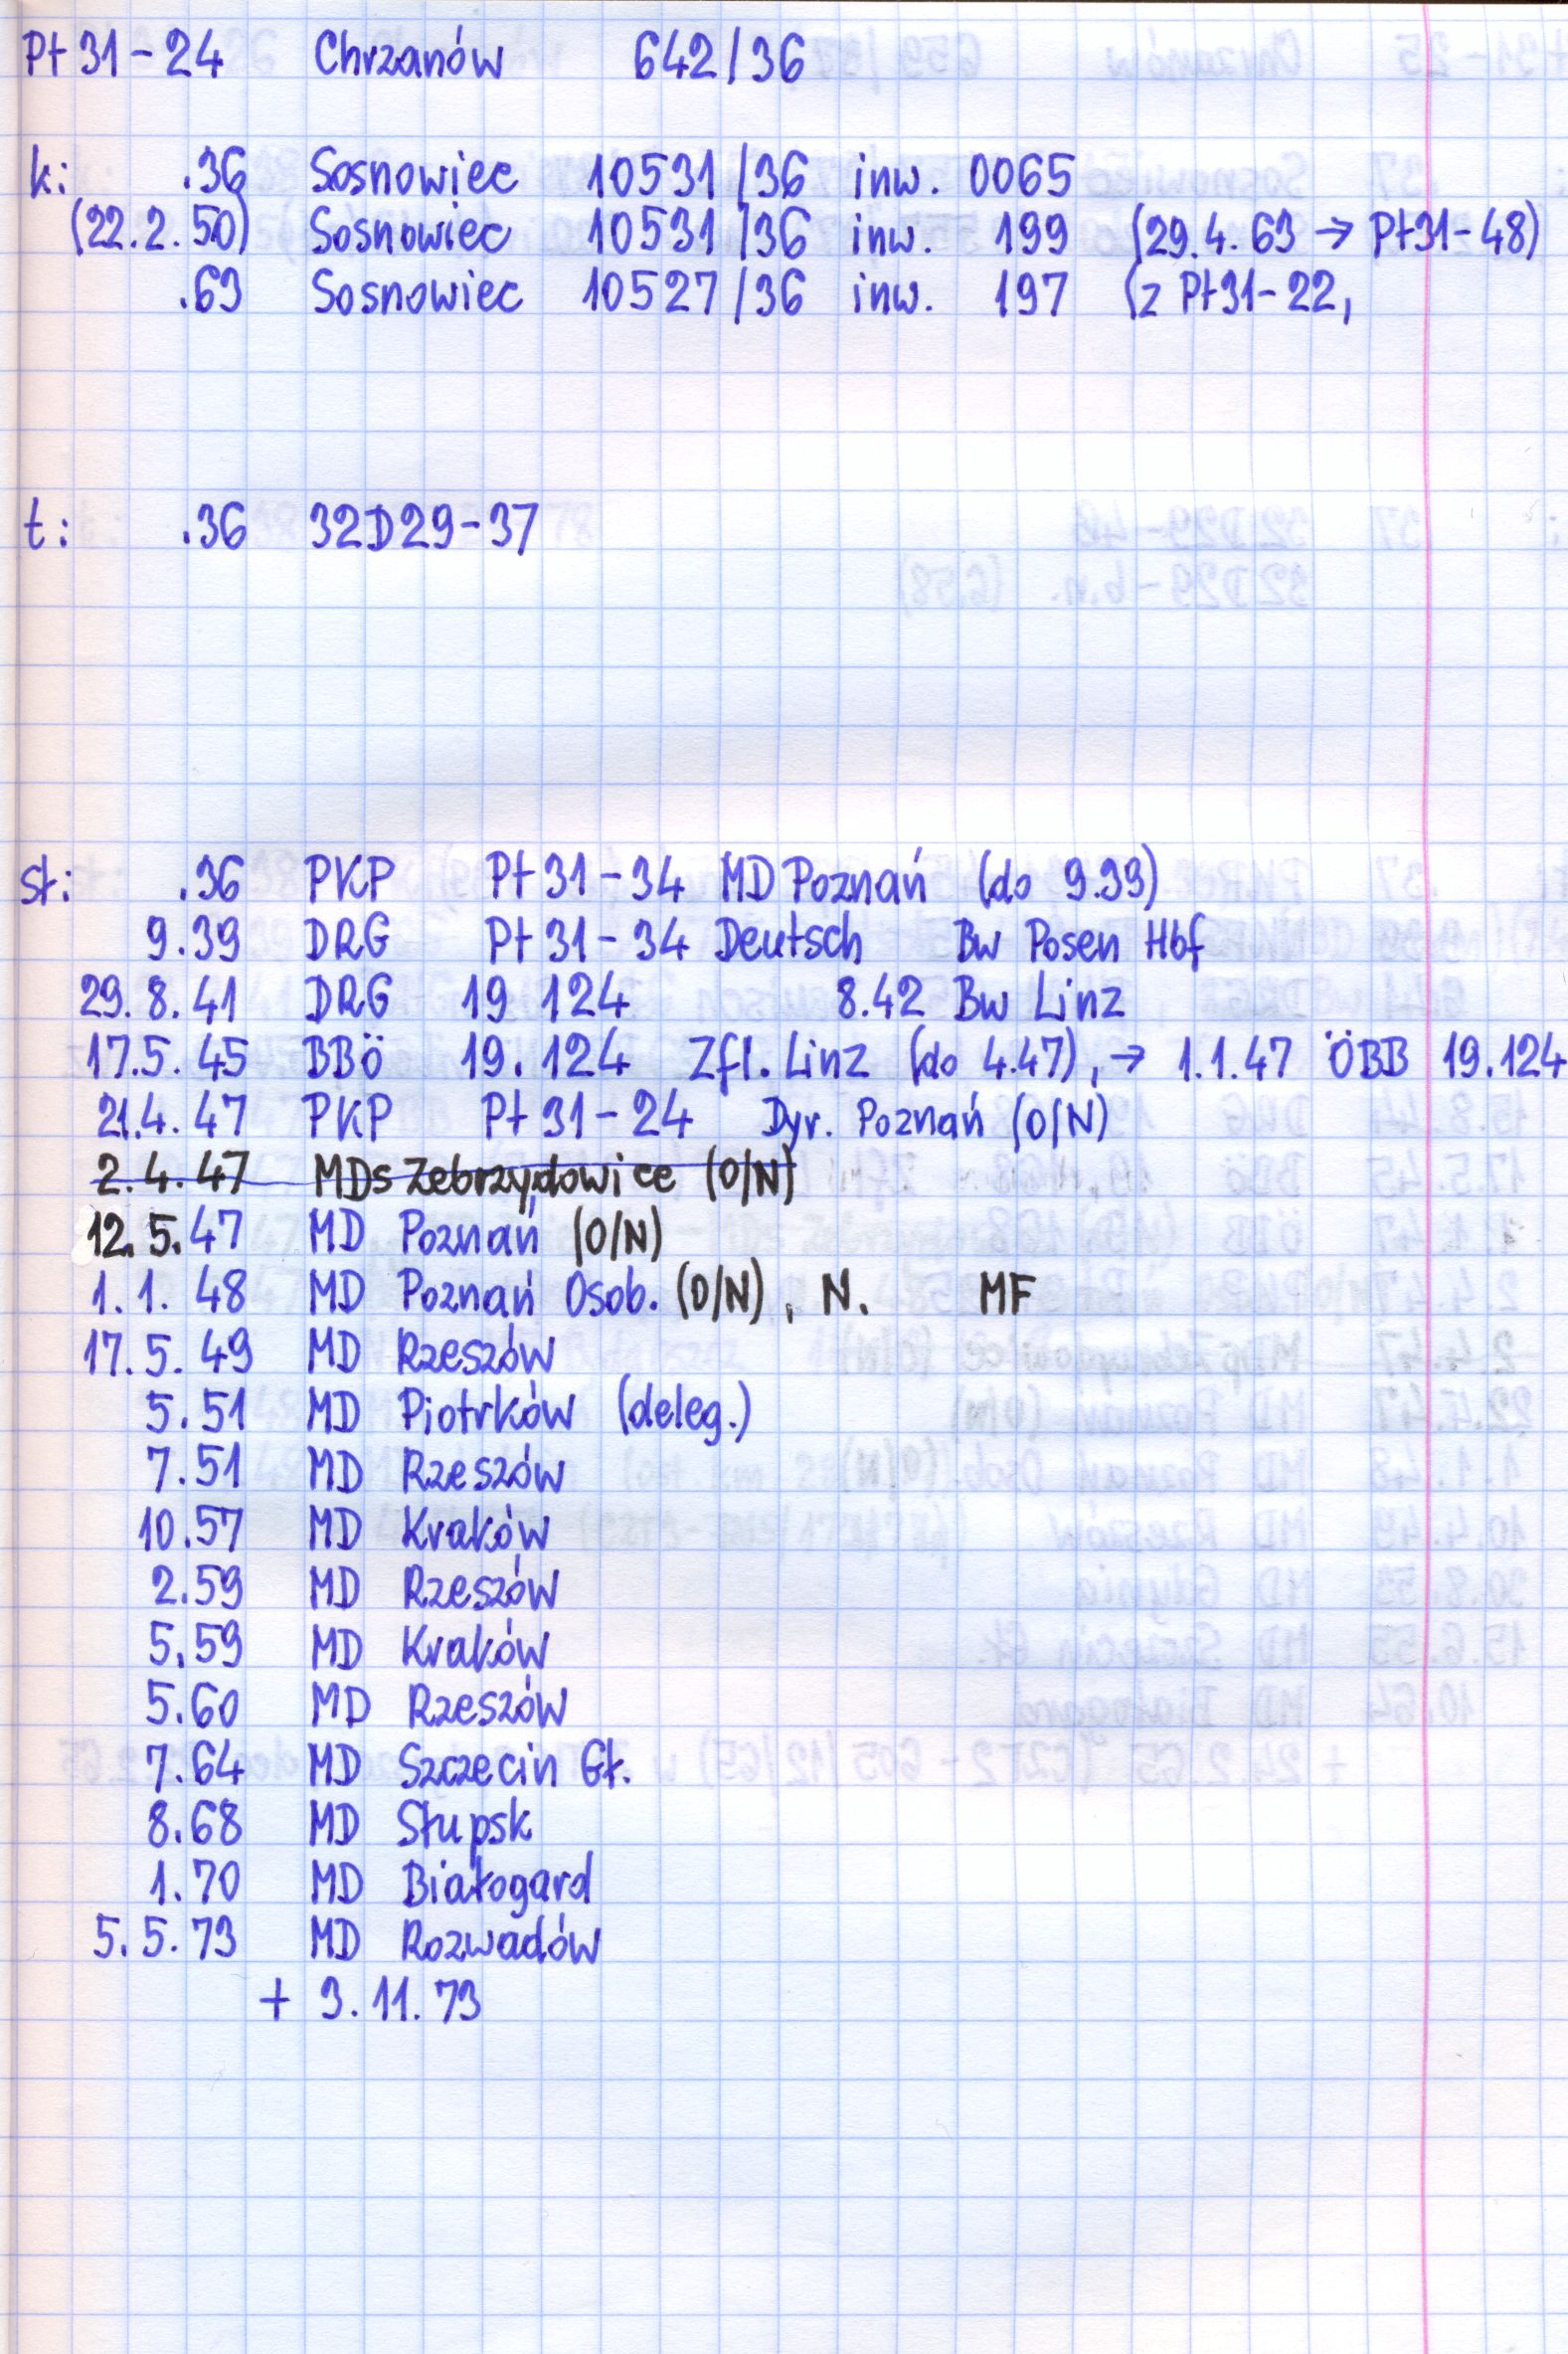 Pt 31-24 Chrzanów 642/36
k: .36 Sosnowiec 10531/36 inw. 0065
(22.2.50) Sosnowiec 10531/36 inw. 199 (29.4.63 → Pt31-48)
.63 Sosnowiec 10527/36 inw. 197 (z Pt31-22,
t: .36 32D29-37
sł: .36 PKP Pt 31-34 MD Poznań (do 9.39)
9.39 DRG Pt 31-34 Deutsch Bw Posen Hbf
29.8.41 DRG 19 124 8.42 Bw Linz
17.5.45 BBÖ 19.124 Zfl. Linz (do 4.47), → 1.1.47 ÖBB 19.124
21.4.47 PKP Pt 31-24 Dyr. Poznań (O/N)
2.4.47 MDs Zebrzydowice (O/N)
12.5.47 MD Poznań (O/N)
1.1.48 MD Poznań Osob. (O/N), N. MF
17.5.49 MD Rzeszów
5.51 MD Piotrków (deleg.)
7.51 MD Rzeszów
10.57 MD Kraków
2.59 MD Rzeszów
5.59 MD Kraków
5.60 MD Rzeszów
7.64 MD Szczecin Gł.
8.68 MD Słupsk
1.70 MD Białogard
5.5.73 MD Rozwadów
+ 3.11.73